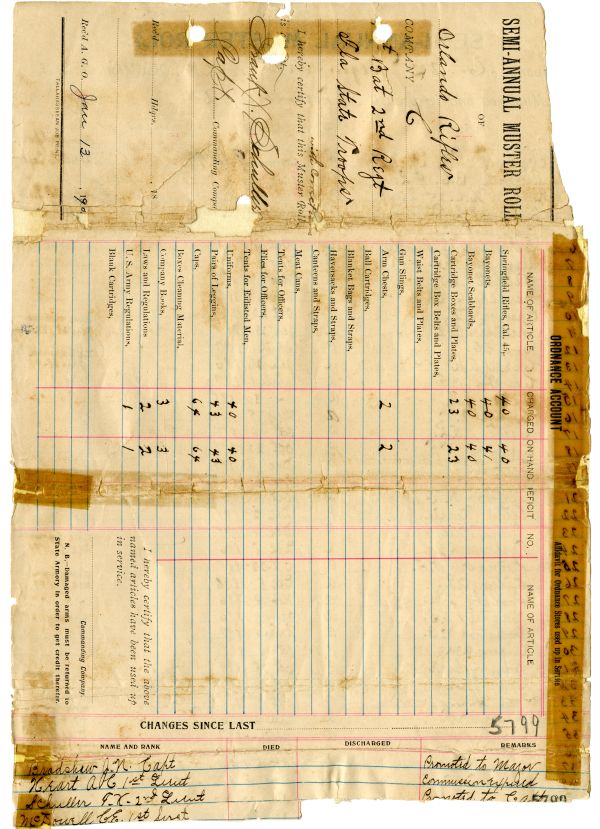 SEMI-ANNUAL MUSTER ROLL
OF
Orlando Rifles
COMPANY C
1st Bat 2nd Regt
Fla State Troops
I hereby certify that this Muster Roll
is
Capt. Commanding Company
Rec'd Hdqrs. , 18
Rec'd A. G. O. Jan 13, 190
TALLAHASSEEAN JOB PRINT.
ORDNANCE ACCOUNT
Affidavit for Ordnance Stores used up in Service
NAME OF ARTICLE CHARGED ON HAND DEFICIT NO. NAME OF ARTICLE
Springfield Rifles, Cal. 45, 40 40
Bayonets, 40 41
Bayonet Scabbards, 40 40
Cartridge Boxes and Plates, 23 23
Cartridge Box Belts and Plates,
Waist Belts and Plates,
Gun Slings,
Arm Chests, 2 2
Ball Cartridges,
Blanket Bags and Straps,
Haversacks and Straps,
Canteens and Straps,
Meat Cans,
Tents for Officers,
Flies for Officers,
Tents for Enlisted Men,
Uniforms, 40 40
Pairs of Leggins, 43 43
Caps, 64 64
Boxes Cleaning Material,
Company Books, 3 3
Laws and Regulations 2 2
U. S. Army Regulations 1 1
Blank Cartridges,
I hereby certify that the above
named articles have been used up
in service.
Commanding Company.
N. B.—Damaged arms must be returned to
State Armory in order to get credit therefor.
5799
CHANGES SINCE LAST
NAME AND RANK DIED DISCHARGED REMARKS
Bradshaw J.N. Capt Promoted to Major
1st Lieut Commission Expired
Schuller F.X. 2nd Lieut Promoted to Capt
McDowell C.E. 1st Lieut